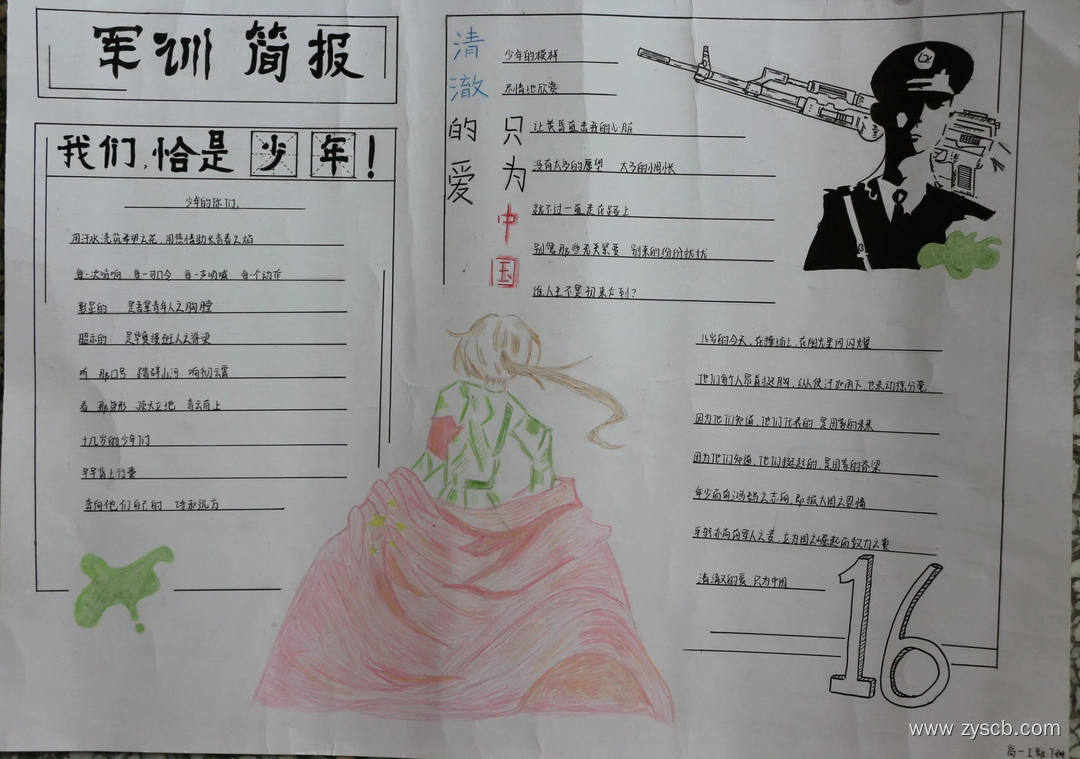 军训 简报
我们,恰是少年!
少年的你们,
用汗水浇筑希望之花,用热情助长青春之焰
每一次呐喊 每一句口令 每一声呐喊 每一个动作
彰显的 是吾辈青年人之胸膛
昭示的 是华夏接班人之脊梁
听 那口号 踏碎山河 响彻云霄
看 那身形 顶天立地 青云直上
十几岁的少年们
早早背上行囊
奔向他们自己的 诗和远方
清澈的爱
只为中国
少年的模样
尽情地欣赏
让黄昏直击我的心脏
没有太多的愿望 太多的惆怅
就不过一直走在路上
别管那些无关紧要 别来的纷纷扰扰
谁人生不是初来乍到?
16岁的今天,在操场上,在阳光里闪闪耀
他们每个人昂首挺胸,纵使汗如雨下,也未动摇分毫
因为他们知道,他们代表的,是国家的未来
因为他们知道,他们挺起的,是国家的脊梁
年少而有鸿鹄之志向,即报大国之恩情
年轻亦有
清澈的爱 只为中国
16
www.zyscb.com
高一